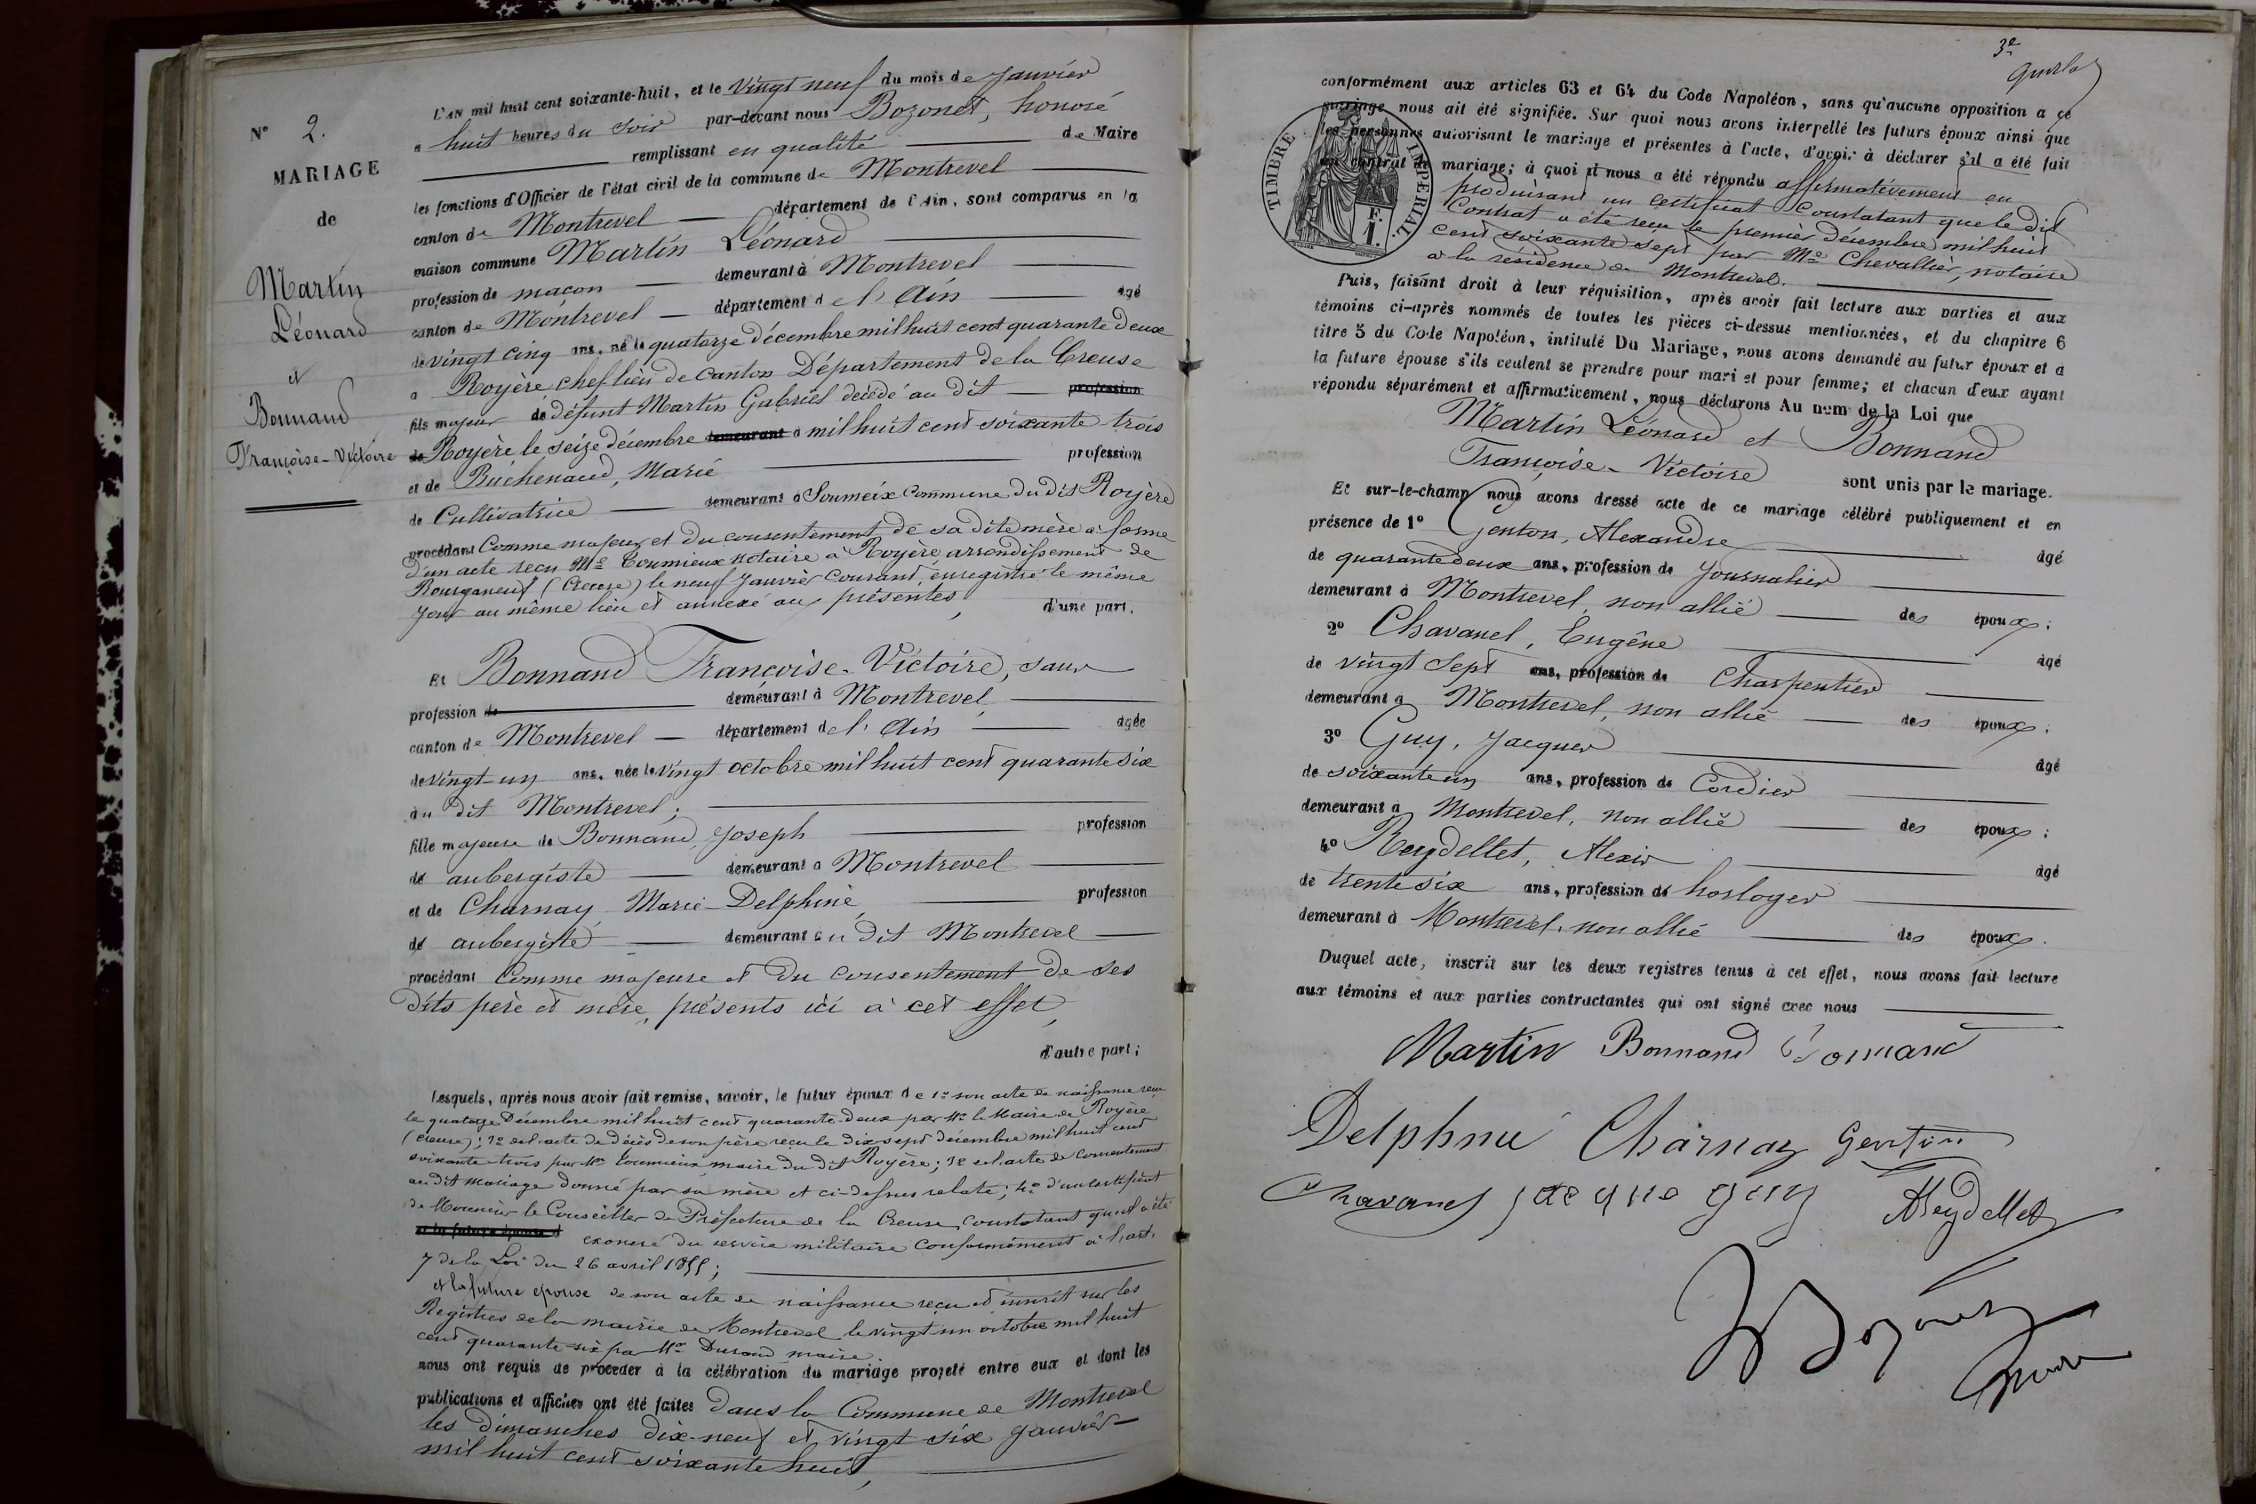 N° 2.
MARIAGE
de
Martin
Léonard
et
Bonnand
Françoise-Victoire
L'AN mil huit cent soixante-huit, et le vingt neuf du mois de Janvier
à huit heures du soir par-devant nous Bozonet, honoré
remplissant en qualité de Maire
les fonctions d'Officier de l'état civil de la commune de Montrevel
canton de Montrevel département de l'Ain, sont comparus en la
maison commune Martin Léonard
profession de maçon demeurant à Montrevel
canton de Montrevel département de l'Ain âgé
de vingt cinq ans, né le quatorze décembre mil huit cent quarante deux
à Royère chef lieu de Canton Département de la Creuse
fils majeur de défunt Martin Gabriel décédé au dit profession
de Royère le seize décembre demeurant à mil huit cent soixante trois
et de Buchenaud, Marie profession
de Cultivatrice demeurant à Soumeix Commune du dit Royère
procédant Comme majeur et du consentement de sa dite mère à forme
d'un acte reçu Me Coumieux notaire à Royère arrondissement de
Bourganeuf (Creuse) le neuf Janvier Courant, enregistré le même
jour au même lieu et annexé aux présentes, d'une part.
Et Bonnand Françoise-Victoire, sans
profession de demeurant à Montrevel,
canton de Montrevel département de l'Ain âgée
de vingt un ans, née le vingt octobre mil huit cent quarante six
au dit Montrevel;
fille majeure de Bonnand, Joseph profession
de aubergiste demeurant à Montrevel
et de Charnay Marie-Delphine, profession
de aubergiste demeurant au dit Montrevel
procédant Comme majeure et du consentement de ses
dits père et mère, présents ici à cet effet,
d'autre part;
Lesquels, après nous avoir fait remise, savoir, le futur époux de 1° son acte de naissance reçu
le quatorze Décembre mil huit cent quarante-deux par Mr le Maire de Royère
(Creuse); 2° del'acte de décès de son père reçu le dix sept décembre mil huit cent
soixante trois par Mr Coumieux, maire du dit Royère; 3° del'acte de consentement
au dit mariage donné par sa mère et ci-dessus relaté; 4° d'un certificat
de Monsieur le Conseiller de Préfecture de la Creuse, constatant qu'il a été
et la future épouse d exonéré du service militaire conformément à l'art.
7 de la Loi du 26 avril 1855;
et la future épouse de son acte de naissance reçu et inscrit sur les
Registres de la mairie de Montrevel le vingt un octobre mil huit
cent quarante six par Mr Durand maire.
nous ont requis de procéder à la célébration du mariage projeté entre eux et dont les
publications et affiches ont été faites dans la Commune de Montrevel
les Dimanches dix-neuf et vingt six Janvier
mil huit cent soixante huit,
3e
conformément aux articles 63 et 64 du Code Napoléon, sans qu'aucune opposition à ce
mariage nous ait été signifiée. Sur quoi nous avons interpellé les futurs époux ainsi que
les personnes autorisant le mariage et présentes à l'acte, d'avoir à déclarer s'il a été fait
un contrat de mariage; à quoi il nous a été répondu affirmativement en
produisant un Certificat Constatant que le dit
Contrat a été reçu le premier décembre mil huit
cent soixante sept par Me Chevallier, notaire
à la résidence de Montrevel.
TIMBRE IMPERIAL
F.
1.
Puis, faisant droit à leur réquisition, après avoir fait lecture aux parties et aux
témoins ci-après nommés de toutes les pièces ci-dessus mentionnées, et du chapitre 6
titre 5 du Code Napoléon, intitulé Du Mariage, nous avons demandé au futur époux et à
la future épouse s'ils veulent se prendre pour mari et pour femme; et chacun d'eux ayant
répondu séparément et affirmativement, nous déclarons Au nom de la Loi que
Martin Léonard et Bonnand
Françoise-Victoire sont unis par le mariage.
Et sur-le-champ nous avons dressé acte de ce mariage célébré publiquement et en
présence de 1° Genton, Alexandre âgé
de quarante deux ans, profession de Journalier
demeurant à Montrevel, non allié des époux;
2° Chavanel, Eugêne âgé
de vingt Sept ans, profession de Charpentier
demeurant à Montrevel, non allié des époux;
3° Guy, Jacques âgé
de soixante un ans, profession de Cordier
demeurant à Montrevel, non allié des époux;
4° Reydellet, Alexis âgé
de trente six ans, profession de horloger
demeurant à Montrevel, non allié des époux.
Duquel acte, inscrit sur les deux registres tenus à cet effet, nous avons fait lecture
aux témoins et aux parties contractantes qui ont signé avec nous
Martin Bonnand Bonnand
Delphine Charnay Genton
Chavanel jacque guy AReydellet
Bozonet
maire